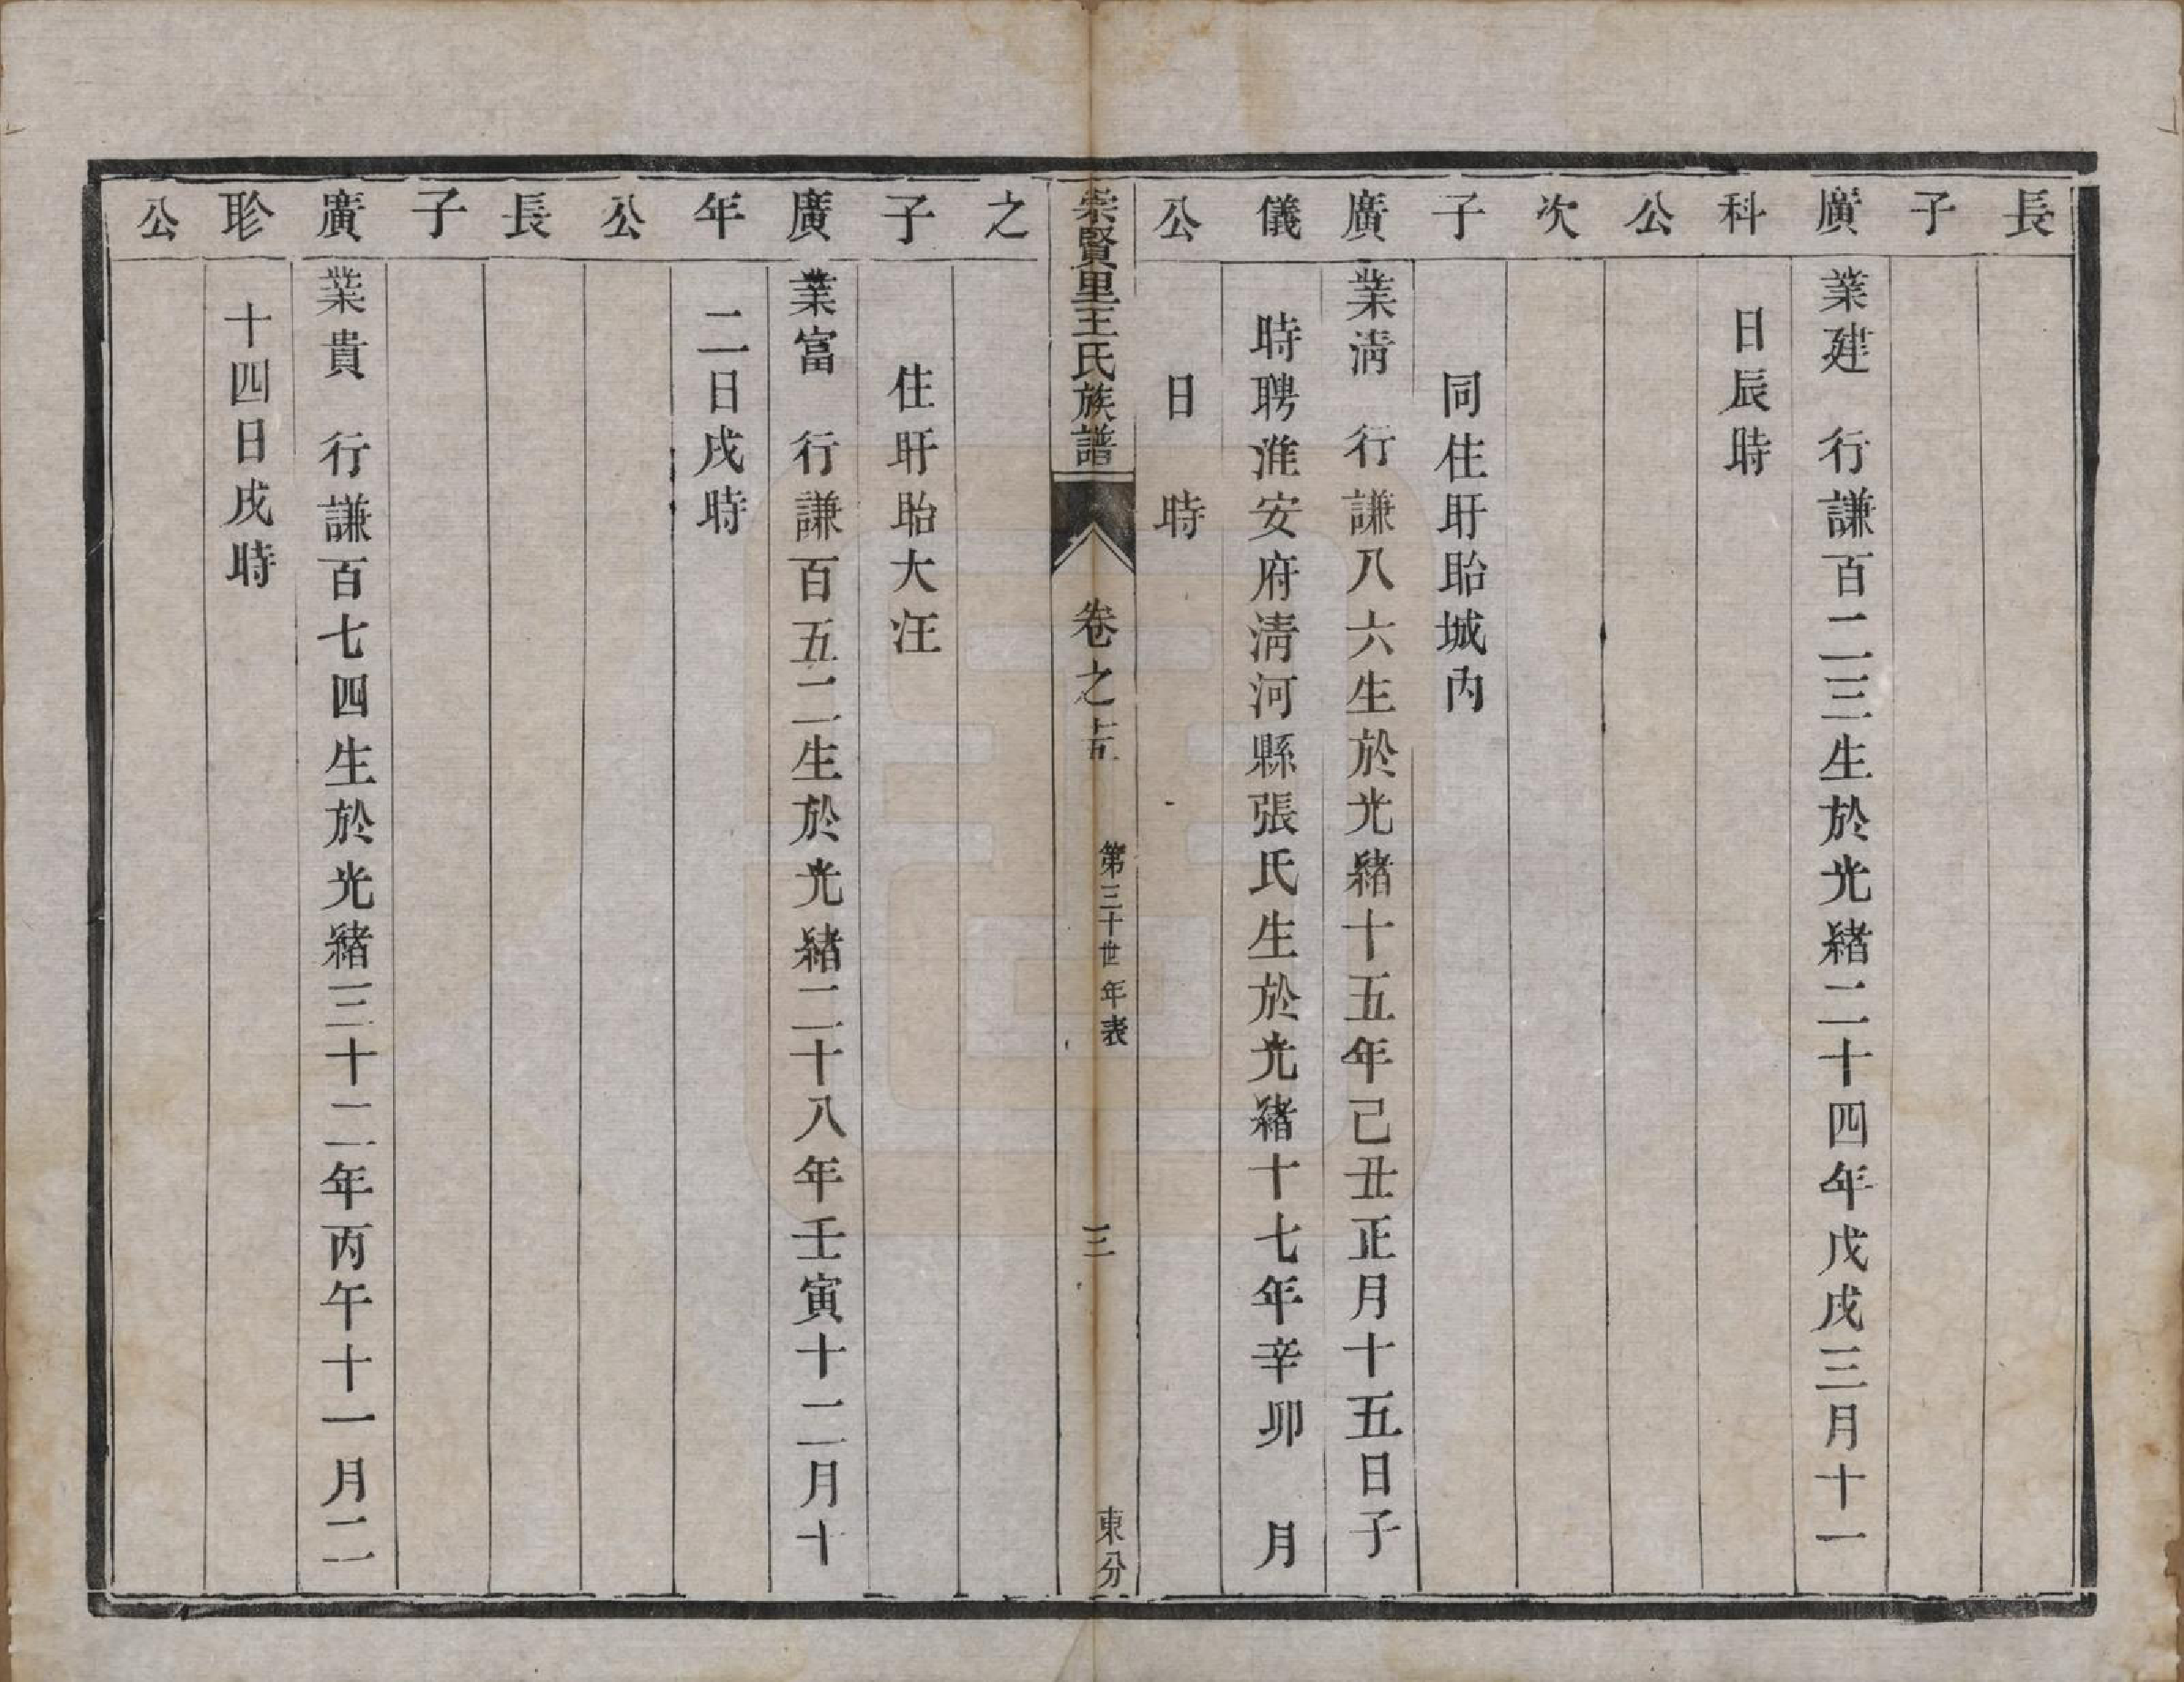 長
子
廣 業建 行謙百二三生於光緒二十四年戊戌三月十一
科 日辰時
公
次
子 同住盱眙城內
廣 業淸 行謙八六生於光緒十五年己丑正月十五日子
儀 時聘淮安府淸河縣張氏生於光緒十七年辛卯 月
公 日 時
崇賢里王氏族譜 卷之十五 第三十世年表 三 東分
之
子 住盱眙大汪
廣 業富 行謙百五二生於光緒二十八年壬寅十二月十
年 二日戌時
公
長
子
廣 業貴 行謙百七四生於光緒三十二年丙午十一月二
聄 十四日戌時
公